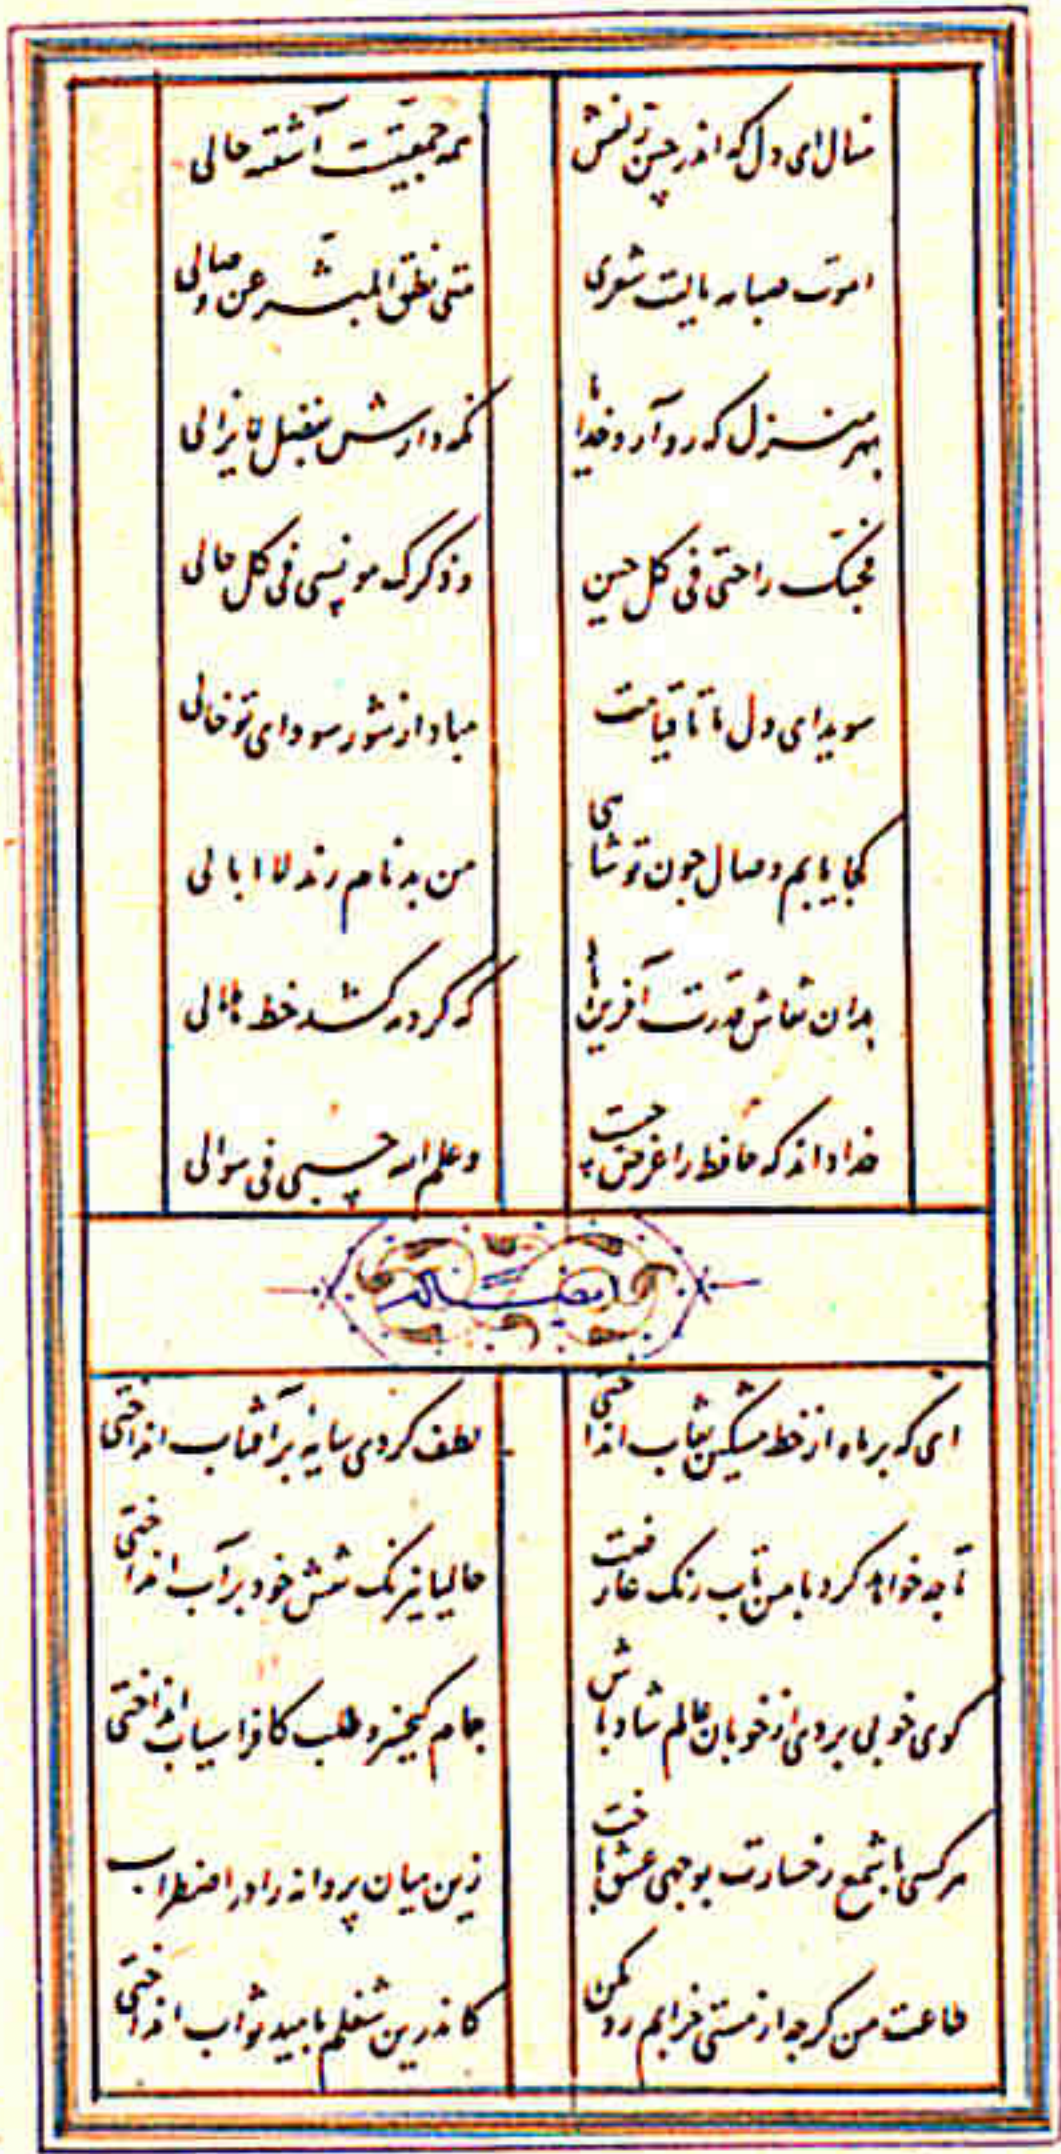 منال ای دل که اندر چین زلفش همه جمعیتت آشفته حالی
اموت صبابه یا لیت شعری متی نطق المبشر عن وصالی
بهر منزل که رو آرد خدایا نگه دارش بفضل لایزالی
فحبک راحتی فی کل حین و ذکرک مونسی فی کل حالی
سویدای دل ما تا قیامت مباد از شور سودای تو خالی
کجا یابم وصال چون تو شاهی من بدنام رند لاابالی
بدان نقاش قدرت آفرینها که گرد مه کشد خط هلالی
خدا داند که حافظ را غرض چیست و علم الله حسبی فی سوالی
ایضا له
ای که بر ماه از خط مشکین نقاب انداختی لطف کردی سایهٔ بر آفتاب انداختی
تا چه خواهد کرد با من تاب رنک عارضت حالیا نیرنک نقش خود بر آب انداختی
کوی خوبی بردی از خوبان عالم شاد باش جام کیخسرو طلب کافراسیاب انداختی
هر کسی با شمع رخسارت بوجهی عشق باخت زین میان پروانه را در اضطراب
طاعت من کرچه از مستی خرابم رد مکن کاندرین شغلم بامید ثواب انداختی